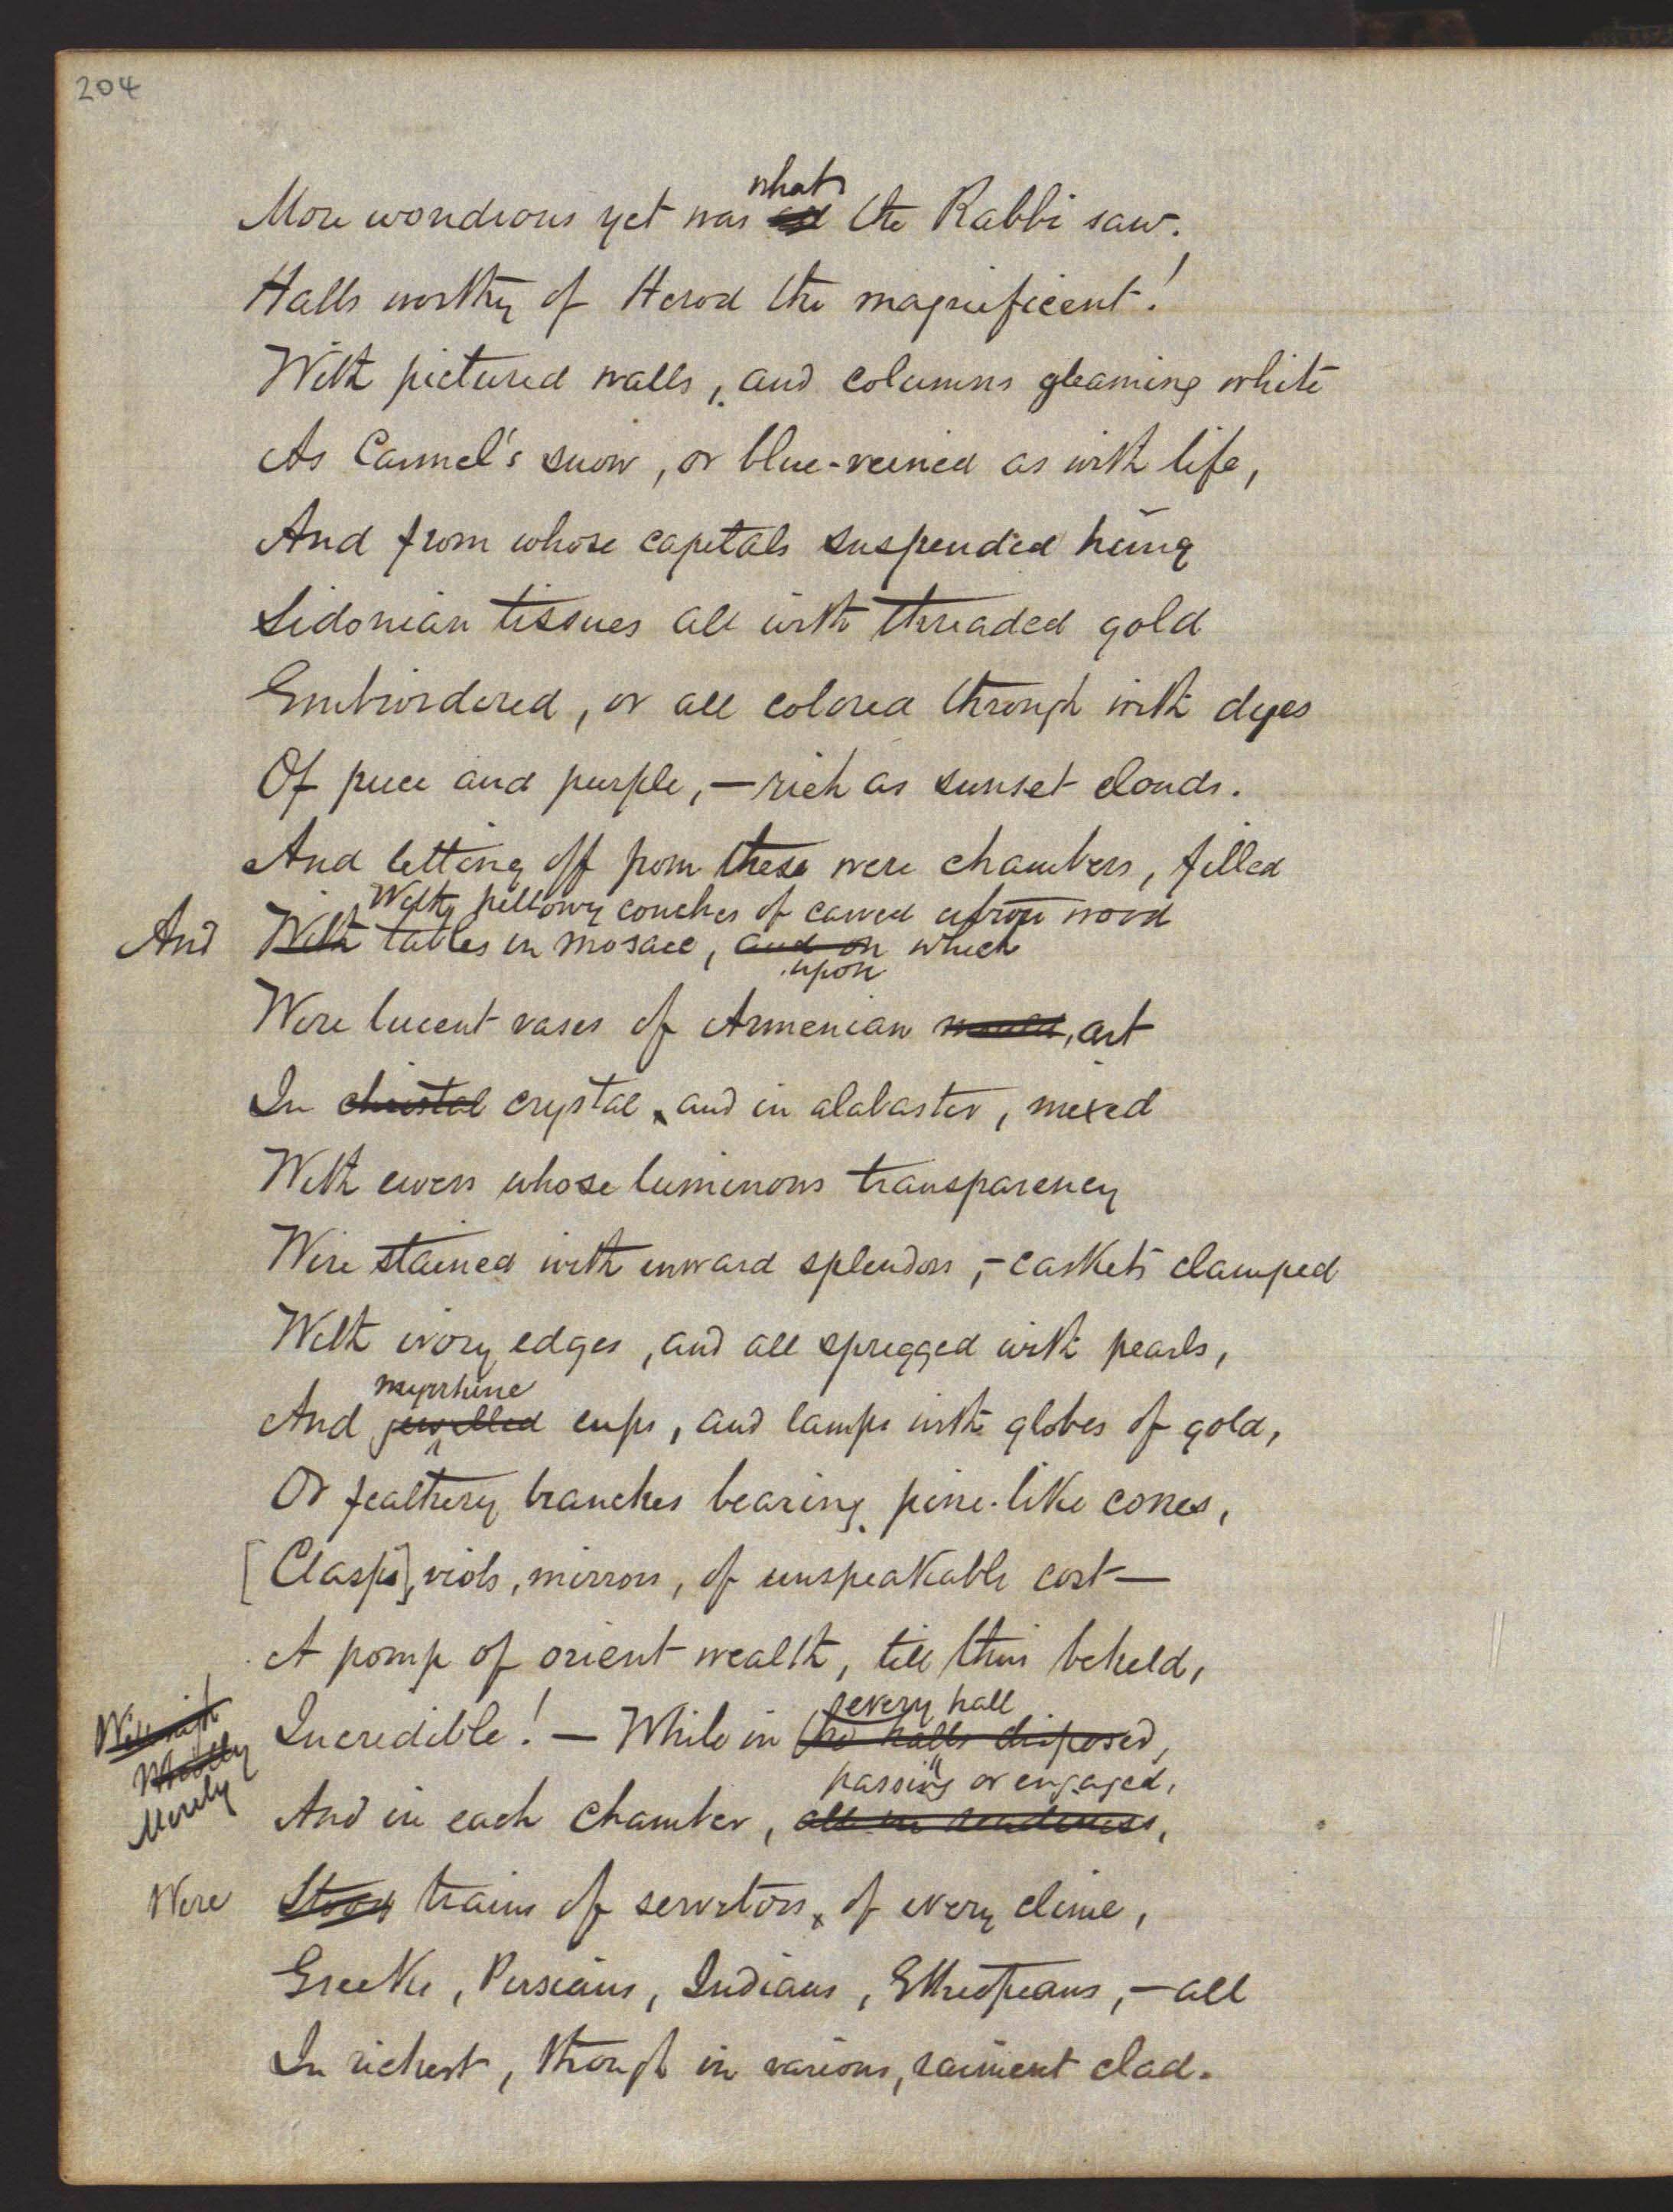 204
what
More wondrous yet was all the Rabbi saw.
Halls worthy of Herod the magnificent!
With pictured walls, and columns gleaming white
As Carmel's snow, or blue-veined as with life,
And from whose capitals suspended hung
Sidonian tissues all with threaded gold
Embroidered, or all colored through with dyes
Of puce and purple,—rich as sunset clouds.
And letting off from these were chambers, filled
With pillowy couches of carved citron wood
And With tables in mosaic, and on which
upon
Were lucent vases of Armenian mould, art
In christal crystal, and in alabaster, mixed
With ewers whose luminous transparency
Were stained with inward splendors,—caskets clamped
With ivory edges, and all sprigged with pearls,
myrrhine
And jewelled cups, and lamps with globes of gold,
Or feathery branches bearing pine-like cones,
[Clasps], viols, mirrors, of unspeakable cost—
A pomp of orient wealth, till then beheld,
every hall
Incredible!—While in the halls disposed,
passing or engaged,
Merely
And in each chamber, all in readiness,
Were Stood trains of servitors, of every clime,
Greeks, Persians, Indians, Ethiopians,—all
In richest, though in various, raiment clad.